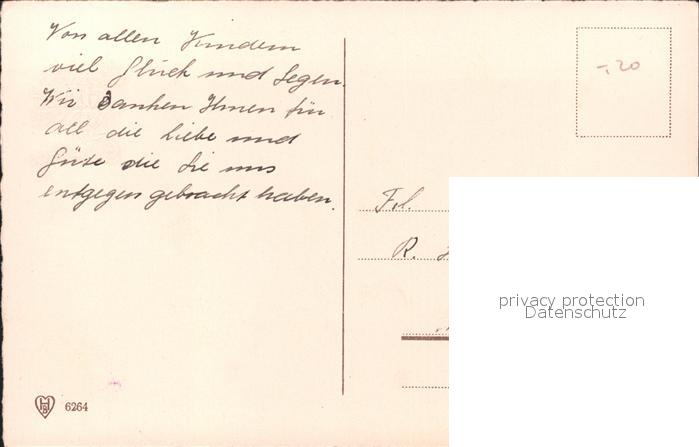 Von allen Kindern
viel Glück und Segen.
Wir danken Ihnen für
all die liebe und
Güte die Sie uns
entgegen gebracht haben.
-,20
Frl.
R.
privacy protection
Datenschutz
6264